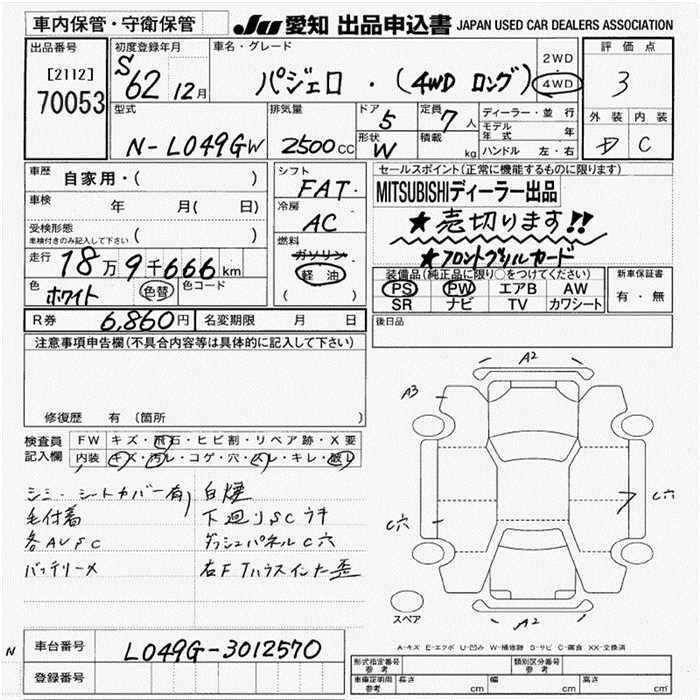 車内保管・守衛保管
JU 愛知 出品申込書 JAPAN USED CAR DEALERS ASSOCIATION
出品番号
[2112]
70053
初度登録年月
S62 12月
車名・グレード
パジェロ ・ (4WD ロング)
2WD
4WD
評価点
3
外装 内装
D C
型式
N-L049GW
排気量
2500CC
ドア
5
形状
W
定員
7人
積載
kg
ディーラー・並行
モデル年式 年
ハンドル 左・右
車歴
自家用・( )
車検
年 月( 日)
受検形態
車検付きのみ記入して下さい ( )
走行
18万9千666km
色
ホワイト
色替
色コード
シフト
FAT
冷房
AC
燃料
ガソリン
軽油
( )
セールスポイント(正常に機能するものに限ります)
MITSUBISHIディーラー出品
★売切ります!!
★フロントグリルガード
装備品(純正品に限り○をつけてください)
PS PW エアB AW
SR ナビ TV カワシート
新車保証書
有・無
後日品
R券 6,860円 名変期限 月 日
注意事項申告欄(不具合内容等は具体的に記入して下さい)
修復歴 有 〔箇所 〕
検査員記入欄
FW キズ・飛石・ヒビ割・リペア跡・X要
内装 キズ・汚レ・コゲ・穴・スレ・キレ・破レ
シミ・シートカバー有 白煙
毛付着 下廻りSCウキ
各AUSC ダッシュパネルC穴
バッテリーメ 右FTハウスインナー歪
A2
A3
C穴
C穴
A2
スペア
A-キズ E-エクボ U-凹み W-補修跡 S-サビ C-腐食 XX-交換済
N
車台番号
L049G-3012570
登録番号
形式指定番号 参考
類別区分番号 参考
車庫証明用 参考 長さ cm 幅 cm 高さ cm